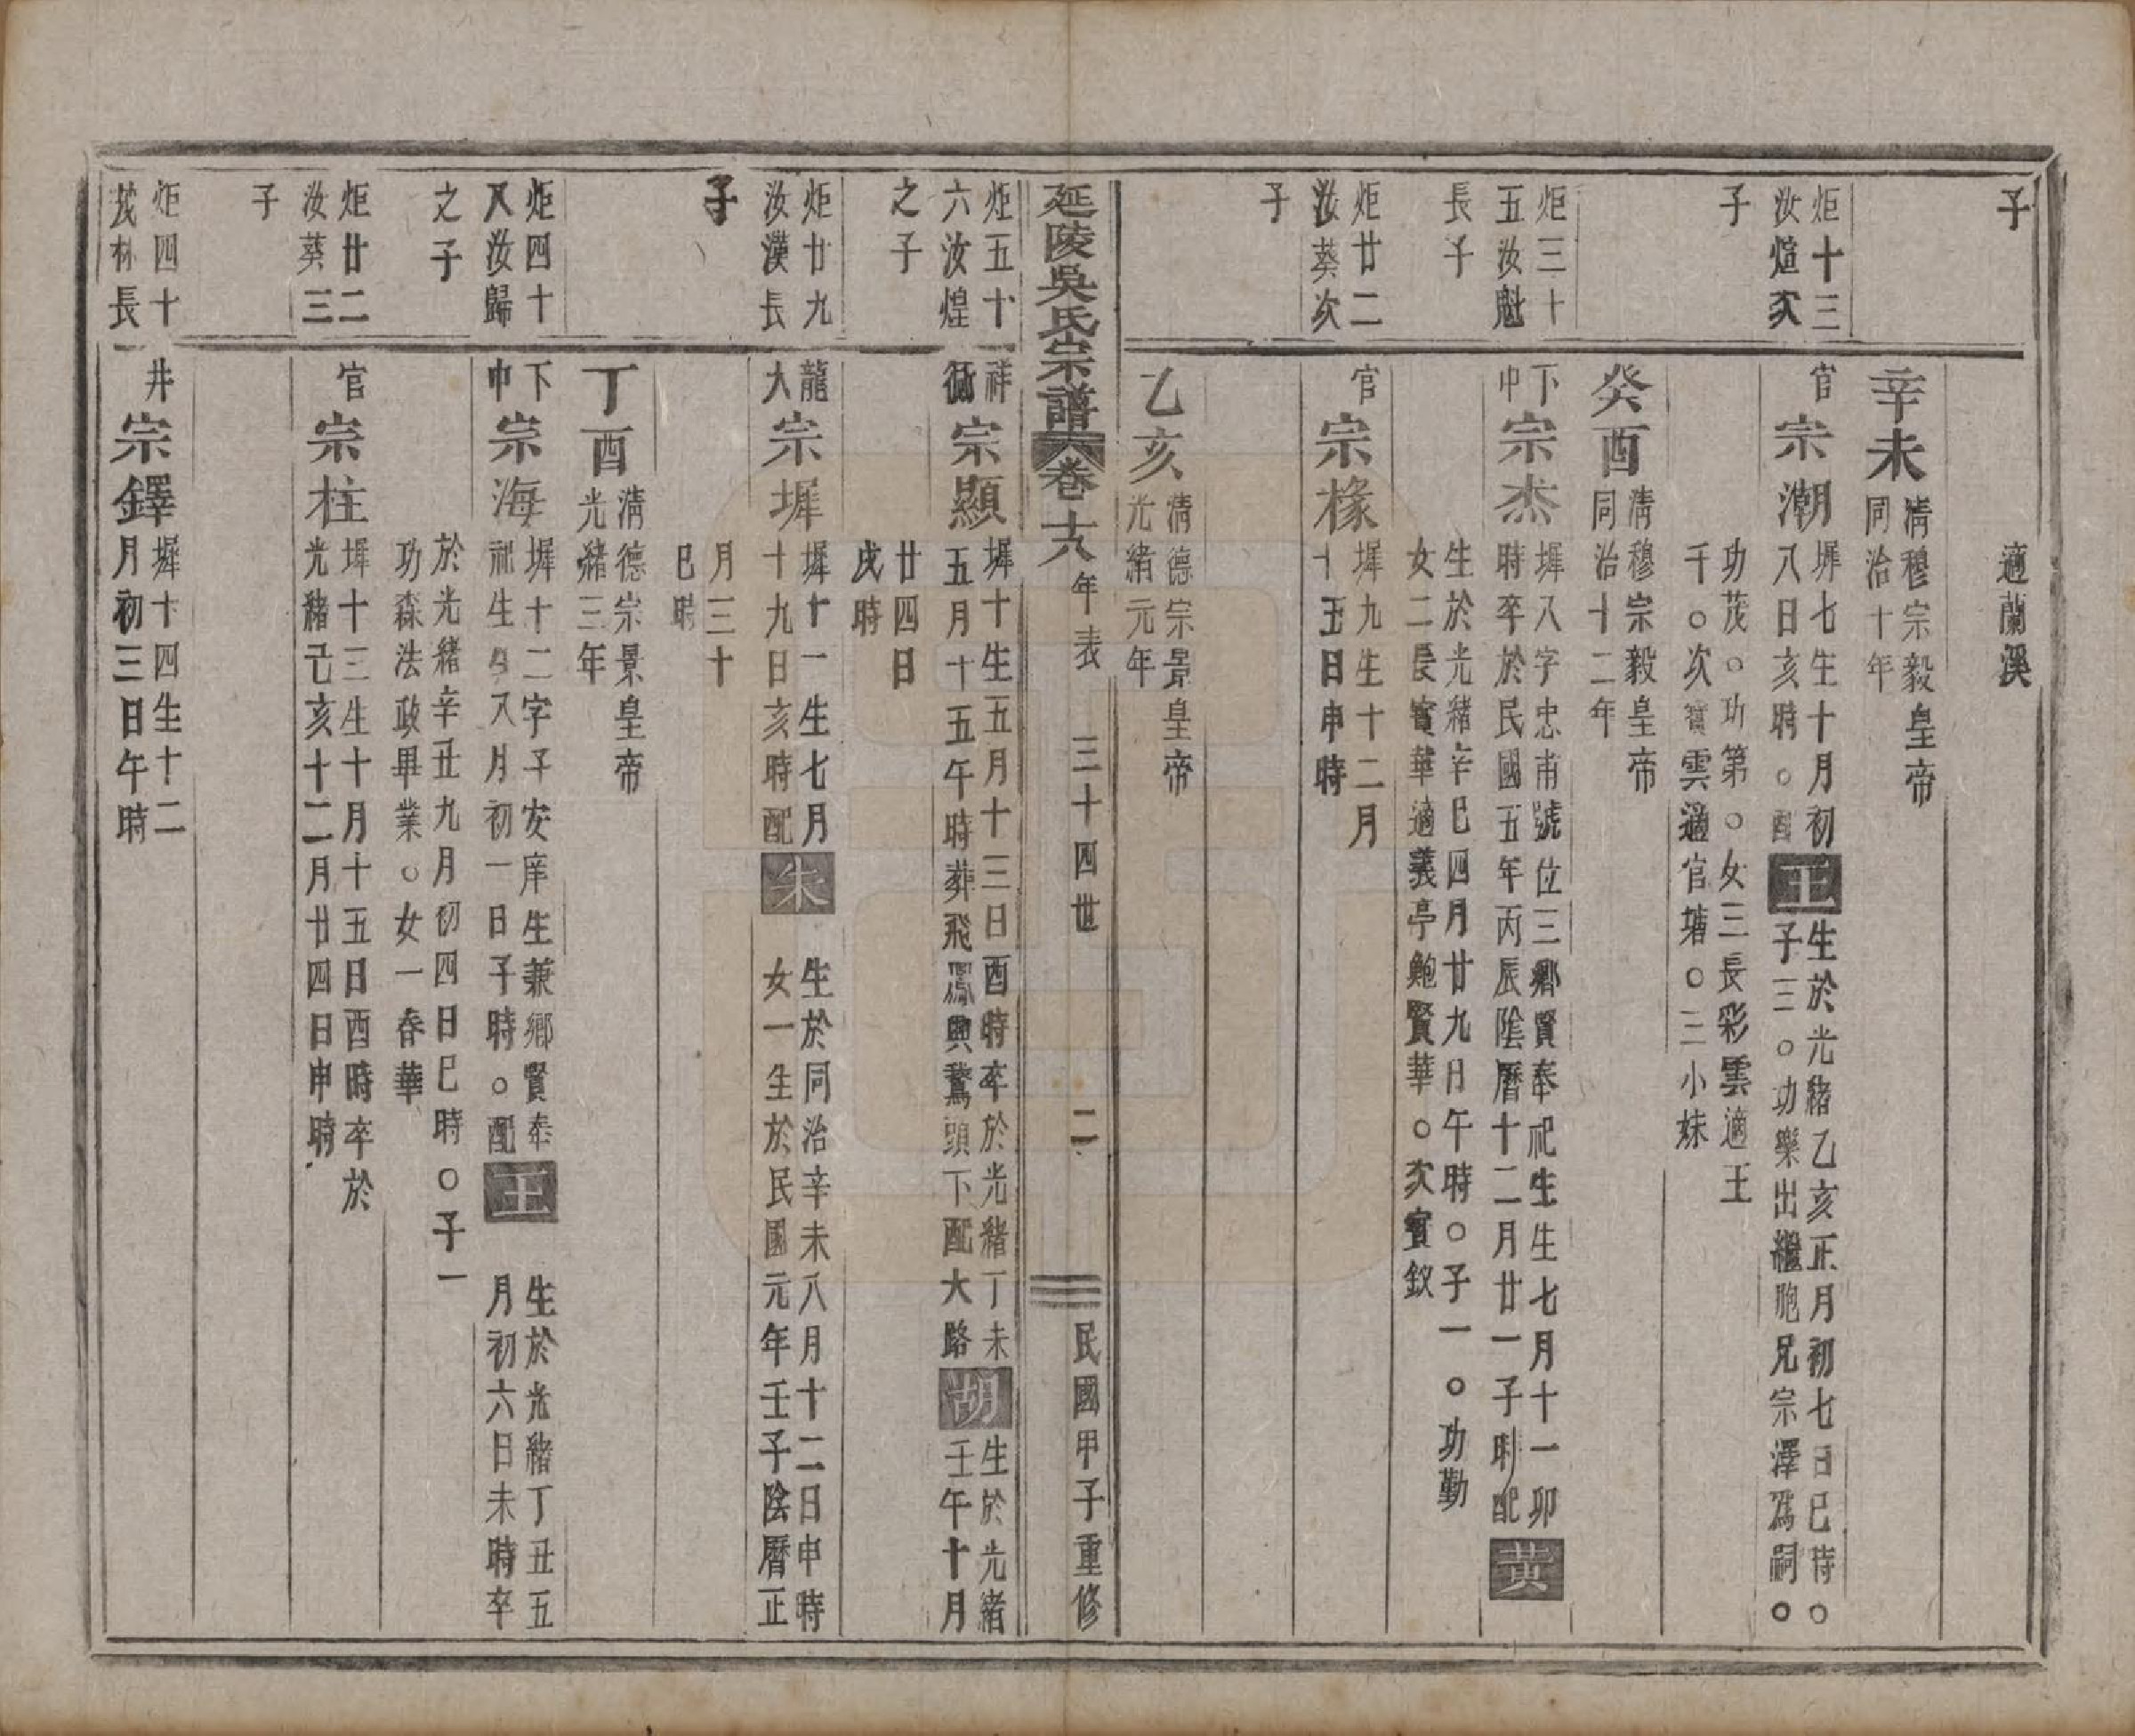 子
適蘭溪
辛未
清穆宗毅皇帝
同治十年
炬十三
汝煊次
官
宗潮
墀七生十月初
八日亥時。配
王
生於光緒乙亥正月初七日巳時。
子三。功樂出繼胞兄宗澤爲嗣。
子
功茂。功第。女三長彩雲適王
千。次寶雲適官塘。三小妹
癸酉
清穆宗毅皇帝
同治十二年
炬三十
五汝魁
下
中
宗杰
墀八字忠甫號位三鄉賢奉祀生生七月十一卯
時卒於民國五年丙辰陰曆十二月廿一子時配
黃
長子
生於光緒辛巳四月廿九日午時。子一。功勤
女二長寶華適義亭鮑賢華。次寶釵
炬廿二
汝葵次
官
宗椽
墀九生十二月
十五日申時
子
乙亥
清德宗景皇帝
光緒元年
延陵吳氏宗譜
卷十八
年表
三十四世
二
民國甲子重修
炬五十
六汝煌
祥
循
宗顯
墀十生五月十三日酉時卒於光緒丁未
五月十五午時葬飛鳳興鵞頭下配大路
胡
生於光緒
壬午十月
之子
廿四日
戌時
炬廿九
汝漢長
龍
大
宗墀
墀十一生七月
十九日亥時配
朱
生於同治辛未八月十二日申時
女一生於民國元年壬子陰曆正
子
月三十
巳時
丁酉
清德宗景皇帝
光緒三年
炬四十
又汝歸
下
中
宗海
墀十二字子安庠生兼鄉賢奉
祀生又月初一日子時。配
王
生於光緒丁丑五
月初六日未時卒
之子
於光緒辛丑九月初四日巳時。子一
功森法政畢業。女一春華
炬廿二
汝葵三
官
宗柱
墀十三生十月十五日酉時卒於
光緒己亥十二月廿四日申時
子
炬四十
林長
井
宗鐸
墀十四生十二
月初三日午時